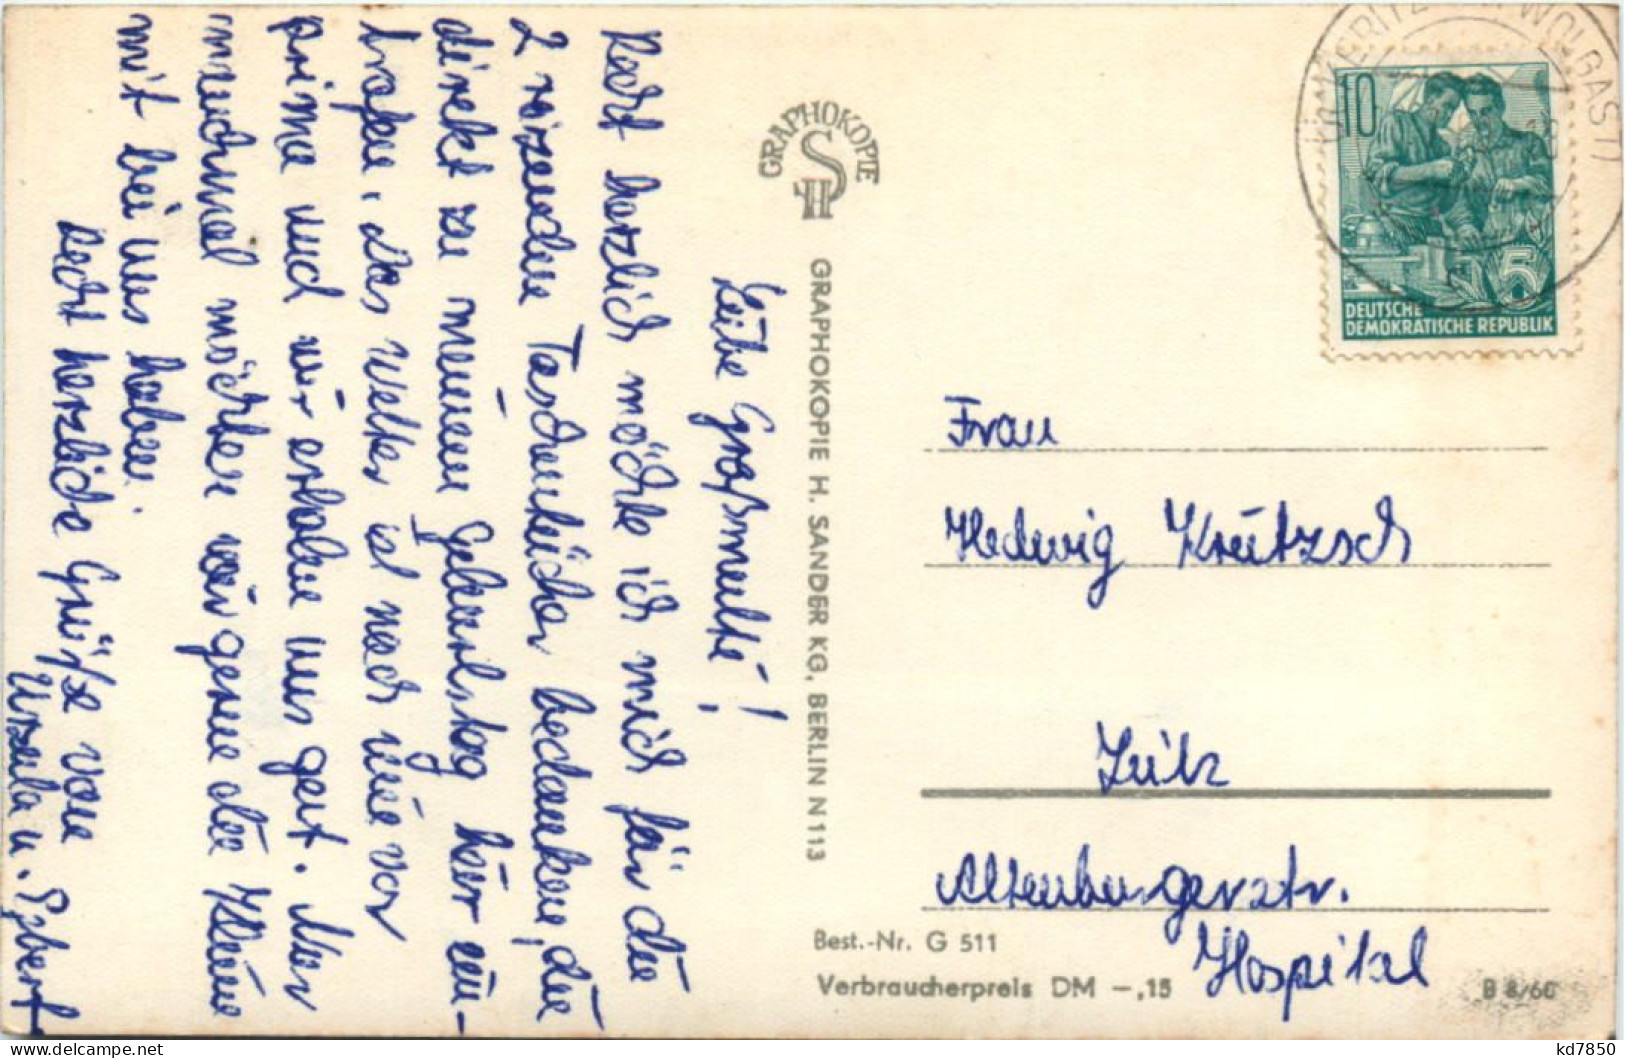 Liebe Großmutti!
Recht herzlich möchte ich mich für die
2 reizenden Taschentücher bedanken, die
direkt zu meinem Geburtstag hier ein-
trafen. Das Wetter ist nach wie vor
prima und wir erholen uns gut. Nur
manchmal möchten wir gerne die Kleine
mit bei uns haben.
Recht herzliche Grüße von
Ursula u. Egbert
GRAPHOKOPIE
HS
GRAPHOKOPIE H. SANDER KG, BERLIN N 113
10
5
DEUTSCHE
DEMOKRATISCHE REPUBLIK
Frau
Hedwig Kreutzsch
Zeitz
Altenburgerstr.
Hospital
Best.-Nr. G 511
Verbraucherpreis DM –,15
B 8/60
kd7850